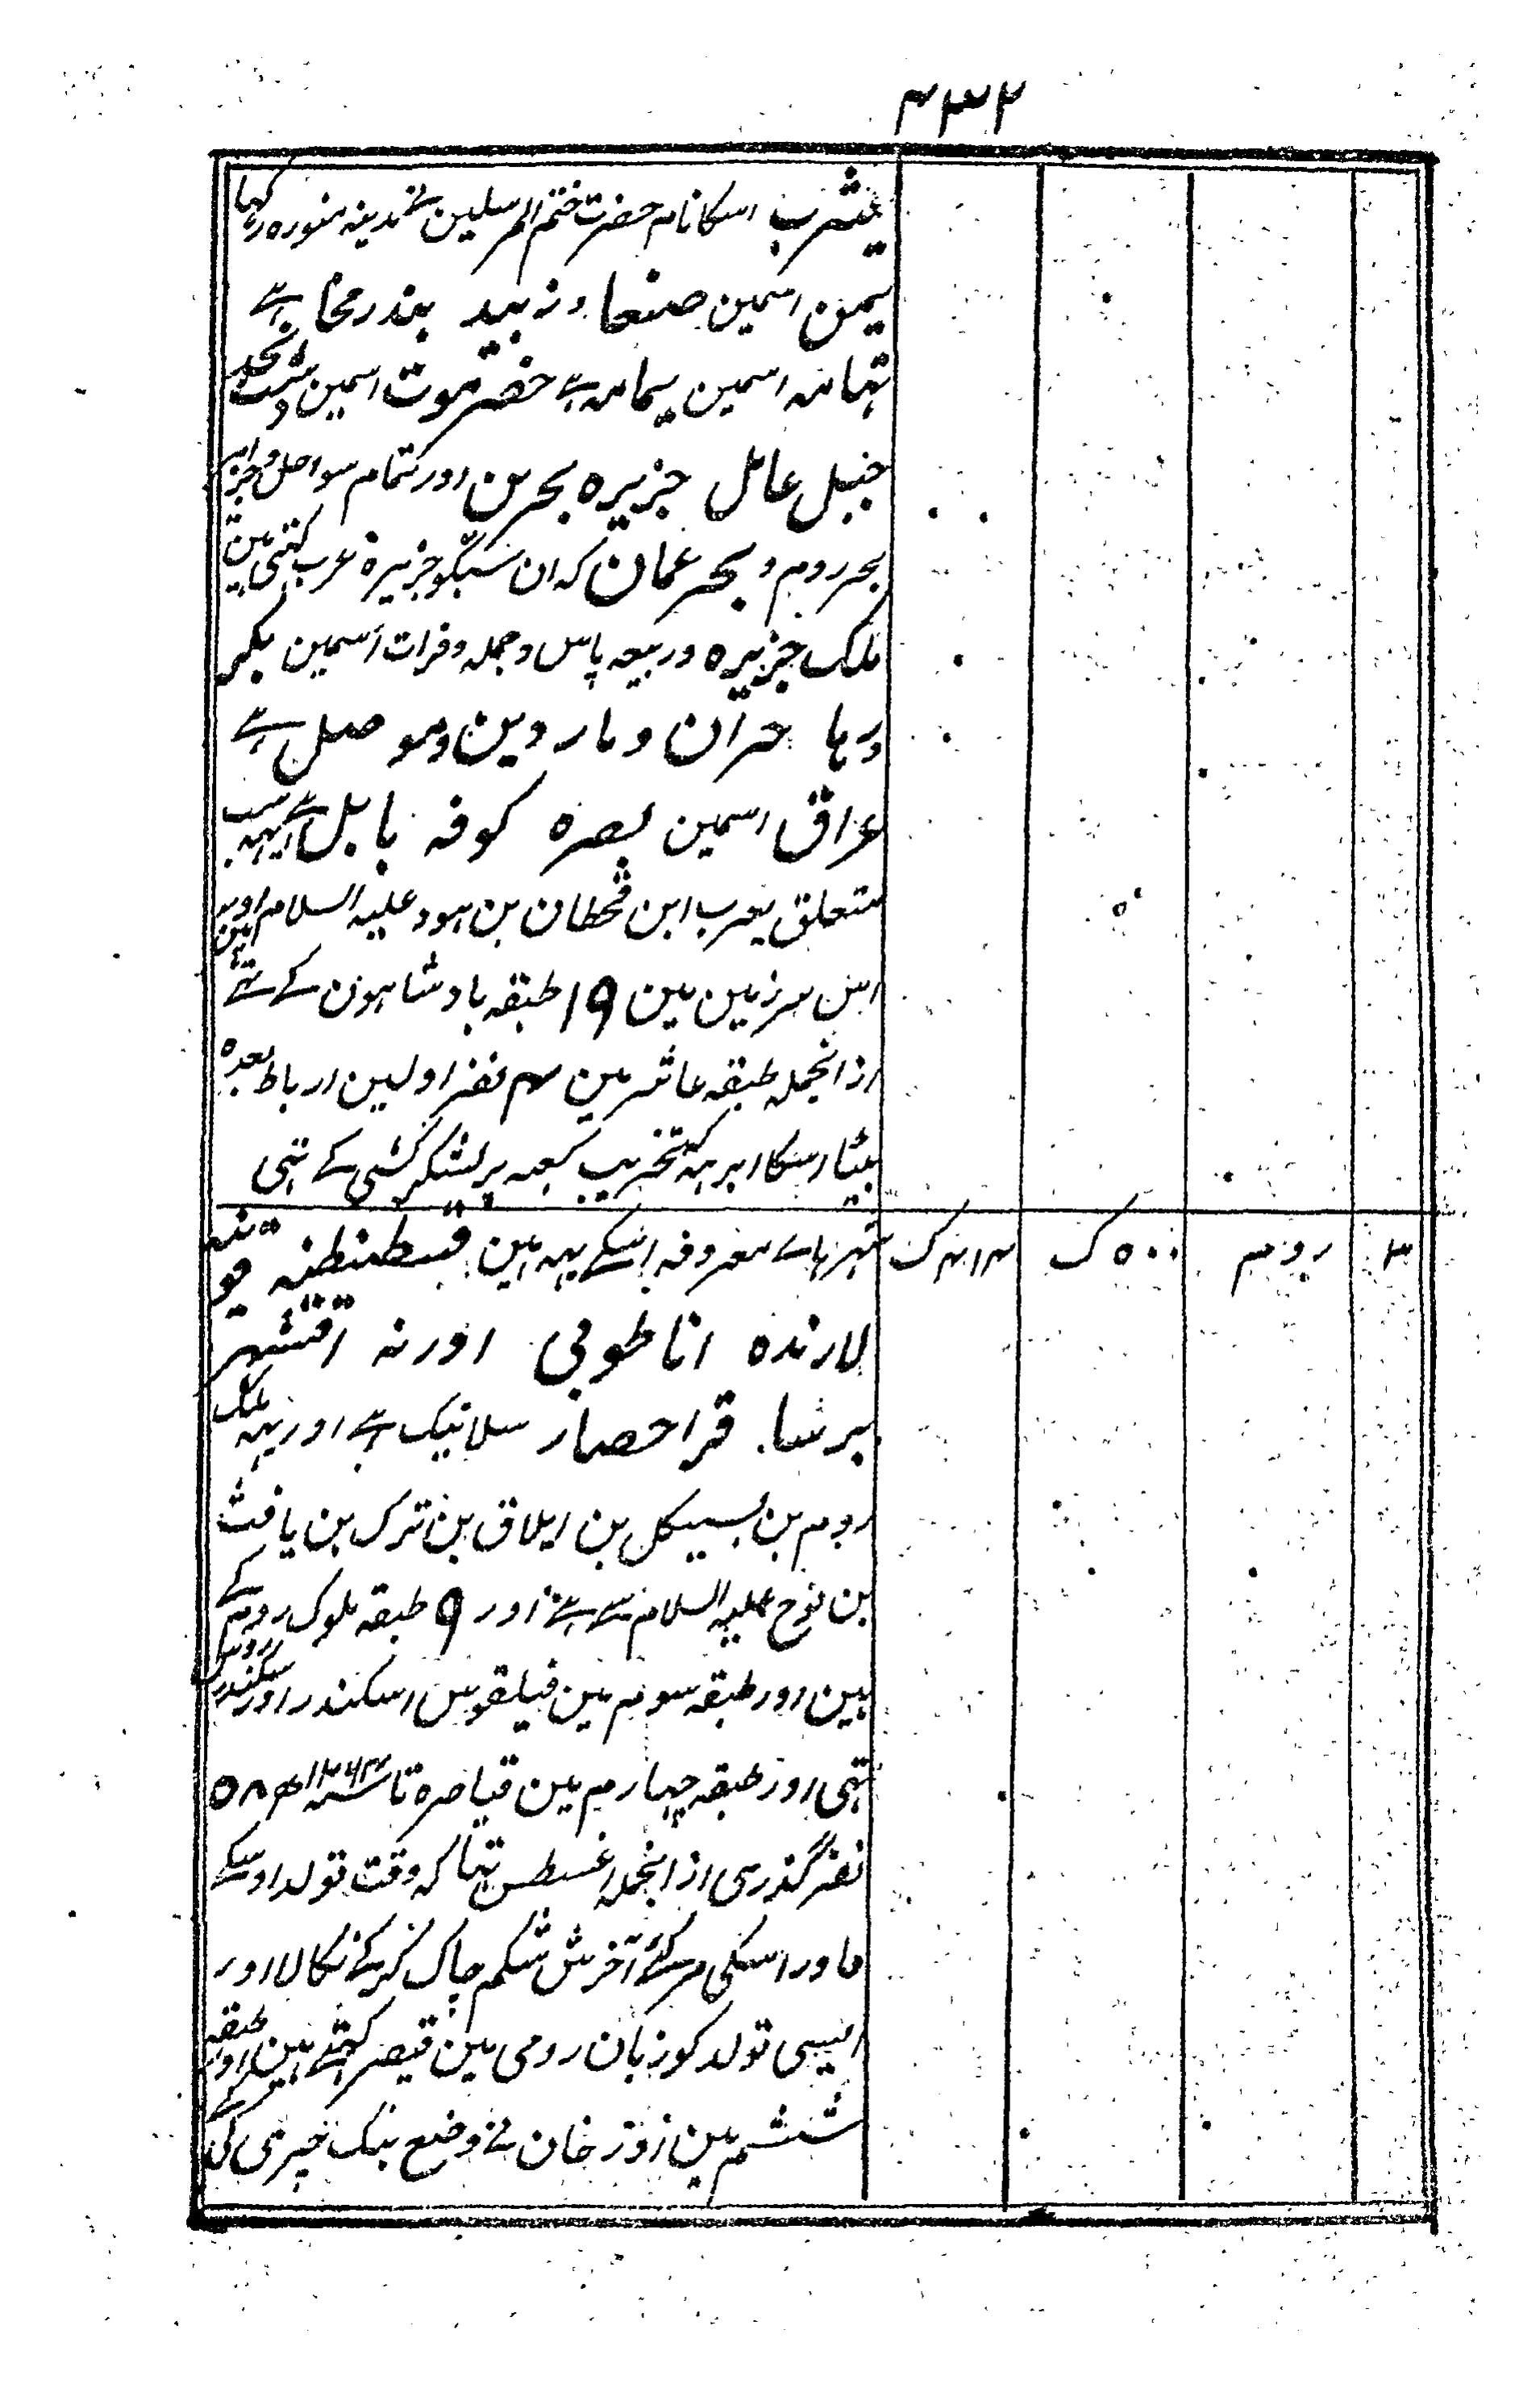 ۴۳۲
یثرب اسکا نام حضرت ختم المرسلین نے مدینہ منورہ رکہا
یمن اسمین صنعا و زبید بندر مخا ہے
تہامہ اسمین یمامہ ہے حضرموت اسمین دشت نجد
جبل عامل جزیرہ بحرین اور تمام سواحل و جزایر
بحر روم و بحر عمان کہ ان سبکو جزیرۃ عرب کہتی ہین
ملک جزیرہ و ربیعہ پاس دجملہ و فرات اسمین بکر
و رہا حران و ماردین و موصل ہے
عراق اسمین بصرہ کوفہ بابل ہے یہہ سب
متعلق یعرب ابن قحطان بن ہود علیہ السلام اور ہین
اس سرزمین مین ۱۹ طبقہ بادشاہون کے تہے
ازانجملہ طبقہ عاشر مین ۴ نفر اولین ارباط بعدہ
بیٹا اسکا ابرہہ کہ تخریب کعبہ پر لشکر کشی کے تہی
۳ روم ۵۰۰ ک ۴۱۴ ک شہرہاے معروفہ اسکے یہہ ہین قسطنطنیہ قونیہ
لارندہ اناطولی اورنہ آقشہر
برسا قراحصار سلانیک ہے اور یہہ ملک
روم بن بسیکل بن ایلاق بن ترک بن یافث
بن نوح علیہ السلام سے ہے اور ۹ طبقہ ملوک روم کے
ہین اور طبقہ سوم مین فیلقوس اسکندر اور سکندروس
تہی اور طبقہ چہارم مین قیاصرہ تا سنہ ۵۸
نفر گذری ازانجملہ اغسطس تہا کہ وقت تولد اوسکے
مادر اسکی مر گئی آخرش شکم چاک کرکے نکالا اور
ایسی تولد کو زبان رومی مین قیصر کہتے ہین اور طبقہ
ششم مین خان نے وضع ینک چری کی